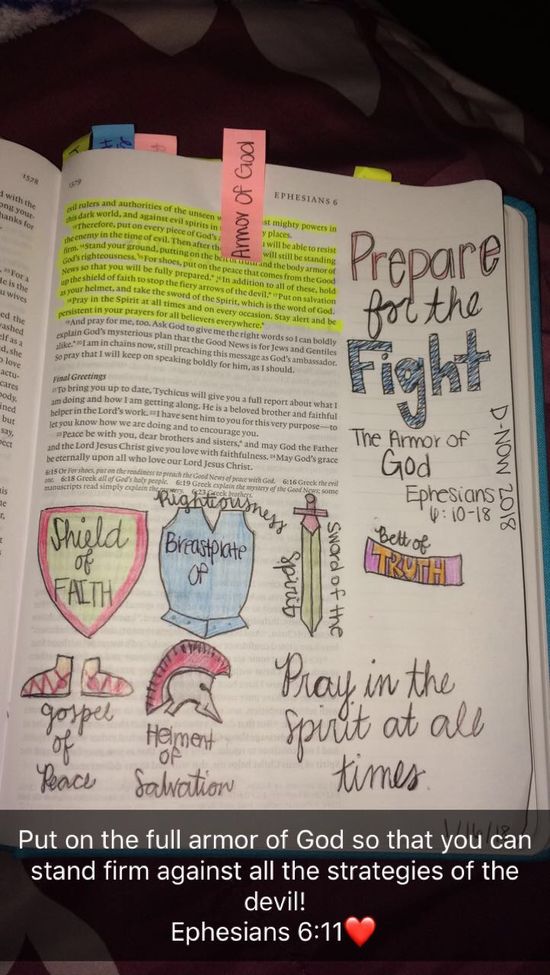 1578
1579
EPHESIANS 6
Armor of God
evil rulers and authorities of the unseen st mighty powers in
this dark world, and against evil spirits in y places.
Therefore, put on every piece of God's will be able to resist
the enemy in the time of evil. Then after the will still be standing
firm. Stand your ground, putting on the and the body armor of
God's righteousness. For shoes, put on the peace that comes from the Good
News so that you will be fully prepared. In addition to all of these, hold
up the shield of faith to stop the fiery arrows of the devil. Put on salvation
as your helmet, and take the sword of the Spirit, which is the word of God.
Pray in the Spirit at all times and on every occasion. Stay alert and be
persistent in your prayers for all believers everywhere.
And pray for me, too. Ask God to give me the right words so I can boldly
explain God's mysterious plan that the Good News is for Jews and Gentiles
alike. I am in chains now, still preaching this message as God's ambassador.
So pray that I will keep on speaking boldly for him, as I should.
Final Greetings
To bring you up to date, Tychicus will give you a full report about what I
am doing and how I am getting along. He is a beloved brother and faithful
helper in the Lord's work. I have sent him to you for this very purpose—to
let you know how we are doing and to encourage you.
Peace be with you, dear brothers and sisters, and may God the Father
and the Lord Jesus Christ give you love with faithfulness. May God's grace
be eternally upon all who love our Lord Jesus Christ.
6:15 Or For shoes, put on the readiness to preach the Good News of peace with God. 6:16 Greek the evil
one. 6:18 Greek all of God's holy people. 6:19 Greek explain the mystery of the Good News; some
manuscripts read simply explain the mystery. 6:23 Greek brothers.
Prepare
for the
Fight
The Armor of
God
Ephesians
6:10-18
D-NOW 2018
Shield
of
FAITH
Rightiousness
Breastplate
OF
Sword of the
Spirit
Belt of
TRUTH
gospel
of
Peace
Helment
OF
Salvation
Pray in the
Spirit at all
times.
1/16/18
Put on the full armor of God so that you can
stand firm against all the strategies of the
devil!
Ephesians 6:11❤️